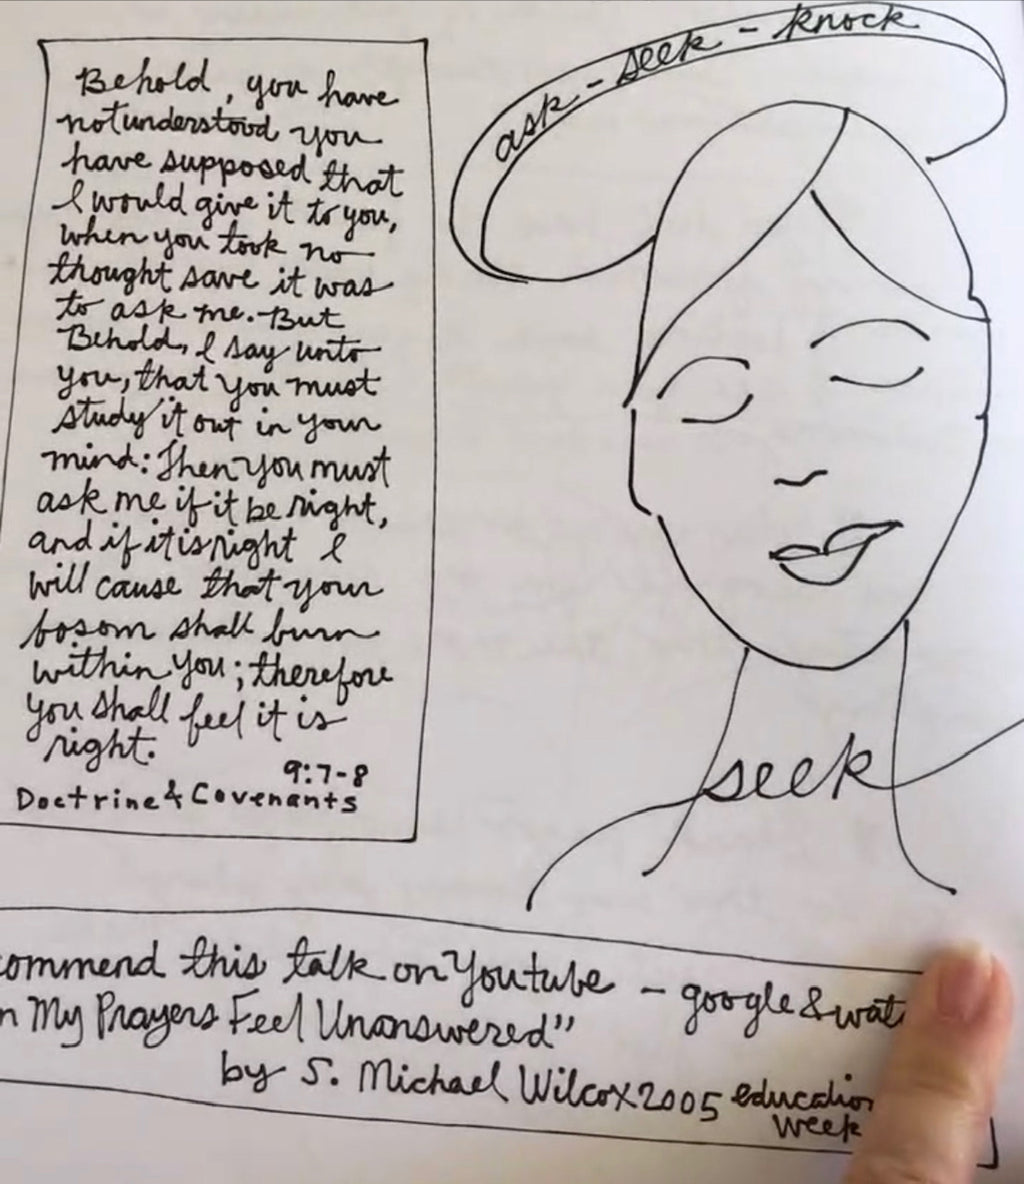 Behold, you have
not understood you
have supposed that
I would give it to you,
when you took no
thought save it was
to ask me. But
Behold, I say unto
you, that you must
study it out in your
mind: Then you must
ask me if it be right,
and if it is right I
will cause that your
bosom shall burn
within you; therefore
you shall feel it is
right.
9:7-8
Doctrine & Covenants
ask - seek - knock
seek
commend this talk on Youtube - google & wat
n My Prayers Feel Unanswered"
by S. Michael Wilcox 2005 education
week